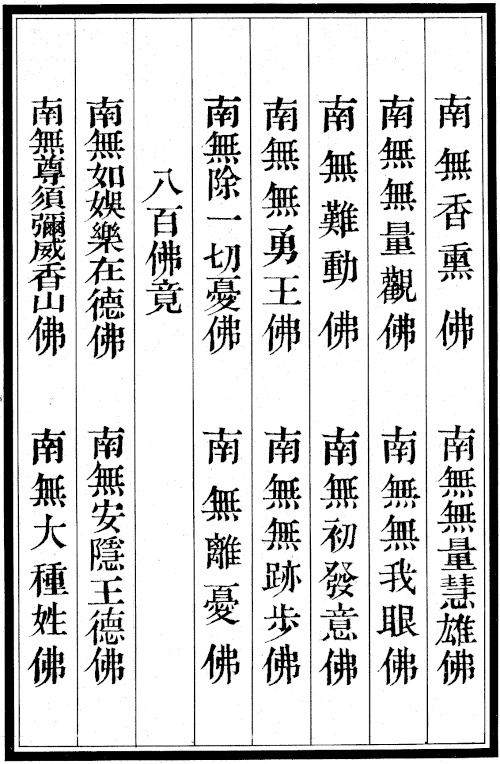 南無香熏佛　南無無量慧雄佛
南無無量觀佛　南無無我眼佛
南無難動佛　南無初發意佛
南無無勇王佛　南無無跡步佛
南無除一切憂佛　南無離憂佛
八百佛竟
南無如娛樂在德佛　南無安隱王德佛
南無尊須彌威香山佛　南無大種姓佛